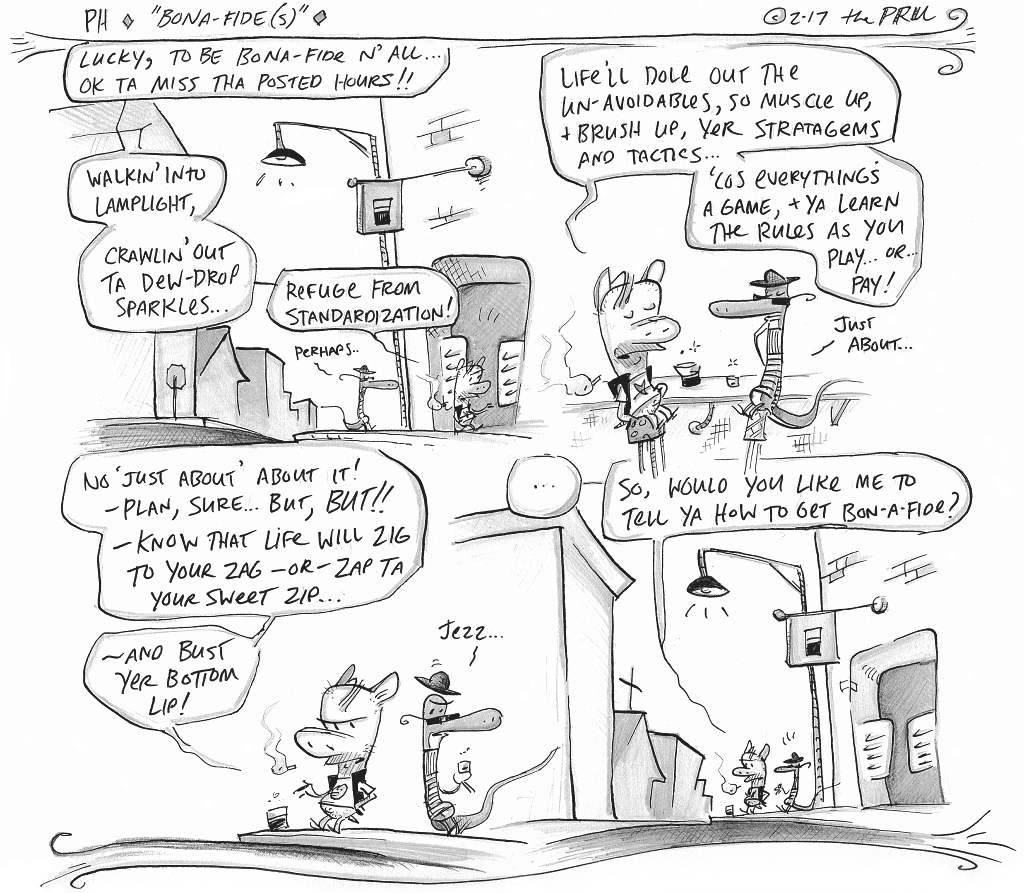 PH ◆ "BONA-FIDE(S)" ◆
©2-17 the PRM
LUCKY, TO BE BONA-FIDE N' ALL...
OK TA MISS THA POSTED HOURS!!
WALKIN' INTO
LAMPLIGHT,
CRAWLIN' OUT
TA DEW-DROP
SPARKLES...
REFUGE FROM
STANDARDIZATION!
PERHAPS..
LIFE'LL DOLE OUT THE
UN-AVOIDABLES, SO MUSCLE UP,
+ BRUSH UP, YER STRATAGEMS
AND TACTICS...
'COS EVERYTHING'S
A GAME, + YA LEARN
THE RULES AS YOU
PLAY... OR...
PAY!
JUST
ABOUT...
NO 'JUST ABOUT' ABOUT IT!
-PLAN, SURE... BUT, BUT!!
-KNOW THAT LIFE WILL ZIG
TO YOUR ZAG -OR- ZAP TA
YOUR SWEET ZIP...
~AND BUST
YER BOTTOM
LIP!
JEZZ...
...
SO, WOULD YOU LIKE ME TO
TELL YA HOW TO GET BON-A-FIDE?